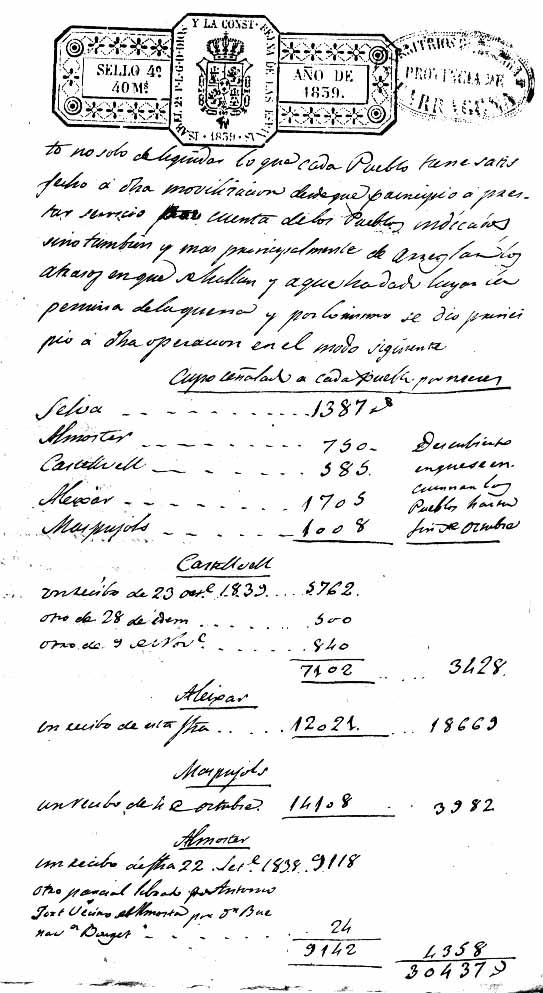 SELLO 4º
40 Ms
ISABEL 2ª P. L. G. D. DIOS Y LA CONST. REYNA DE LAS ESPAÑAS · 1839 ·
AÑO DE
1839.
ARBITRIOS DE
PROVINCIA DE
TARRAGONA
to no solo de liquidar lo que cada Pueblo tiene satis
fecho á dha movilizacion desde que principio á pres-
tar servicio por cuenta de los Pueblos indicados
sino tambien y mas principalmente de arreglar los
atrasos en que se hallan y a que ha dado lugar la
penuria de la guerra y por lo mismo se dio princi
pio á dha operacion en el modo siguiente
Cupo señalado a cada pueblo por meses
Selva 1387
Almoster 750
Castellvell 585.
Aleixar 1705
Maspujols 1008
Descubierto
en que se en-
cuentran los
Pueblos hasta
fin de Octubre
Castellvell
un recibo de 23 oct.e 1839 5762.
otro de 28 de idem 500
otro de 9 de Nov.e 840
7102 3428.
Aleixar
un recibo de esta fha 12021. 18669
Maspujols
un recibo de 4 de octubre. 14108 3982
Almoster
un recibo de fha 22 Set.e 1838 9118
otro parcial librado por Antonio
Fort Vecino de Almoster por Dn Bue
nava 24
9142 4358
30437